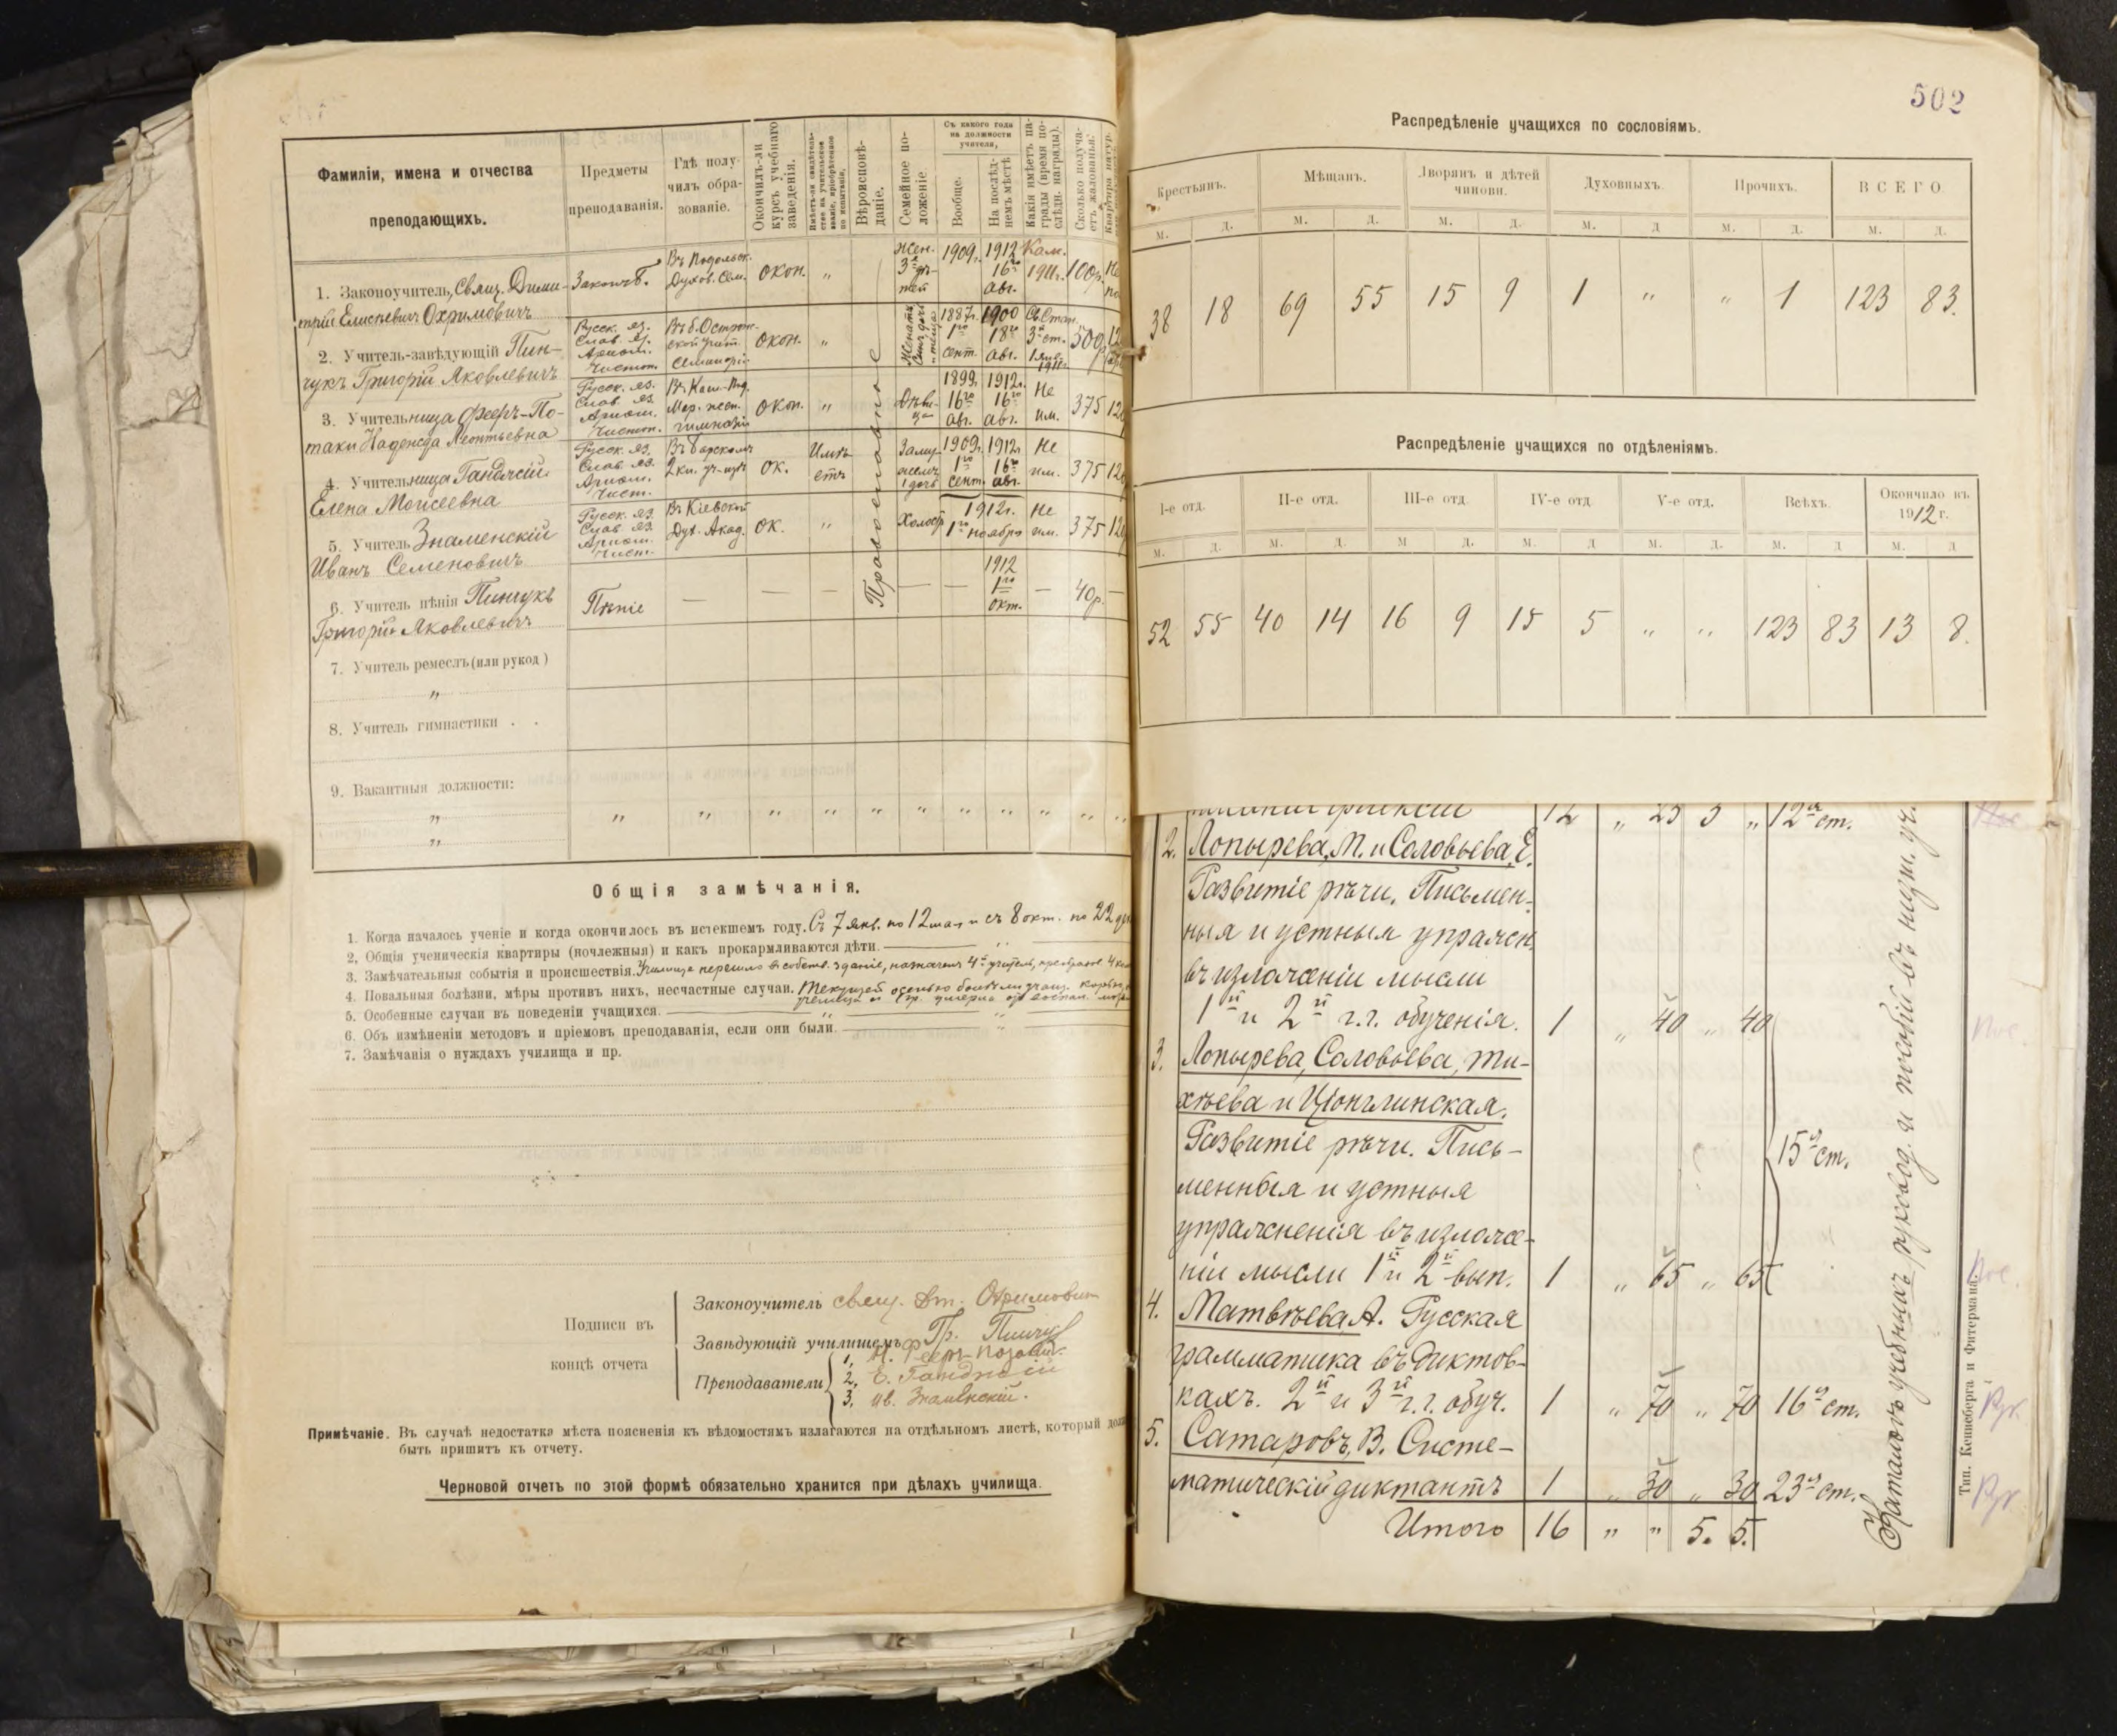 Фамиліи, имена и отчества преподающихъ.
Предметы преподаванія.
Гдѣ получилъ образованіе.
Окончилъ-ли курсъ учебнаго заведенія.
Вѣроисповѣданіе.
Семейное положеніе.
Съ какого года на должности учителя,
Вообще.
На послѣднемъ мѣстѣ
Какія имѣетъ награды (время послѣдн. награды).
Сколько получаетъ жалованья.
1. Законоучитель, Свящ. Дими-
трій Елисѣевичъ Охримовичъ
Законъ Б.
Въ Подольск. Духов. Сем.
окон. „
Жен. 3-е дѣтей
1909 г. 1912 16го авг. Кам. 1911 г. 100 р.
2. Учитель-завѣдующій Пин-
чукъ Григорій Яковлевичъ
Русск. яз. Слав. яз. Ариѳм. Чистоп.
Въ б. Острож. ской учит. Семинаріи
окон. „
1887 г. 1го сент. 1900 18го авг. Св. Стан. 3й ст. 1 янв. 1911 г. 500 р.
3. Учительница Фееръ-По-
таки Надежда Леонтьевна
Русск. яз. Слав. яз. Ариѳм. Чистоп.
Въ Кам.-Под. Мар. жен. гимназіи
окон. „
Дѣвица
1899 16го авг. 1912 г. 16го авг. Не им. 375
4. Учительница Гандзій
Елена Моисеевна
Русск. яз. Слав. яз. Ариѳм. Чист.
Въ Барскомъ 2 кл. уч-щѣ
ок. Имѣетъ
Замужемъ 1 дочь
1909 г. 1го сент. 1912 г. 16го авг. Не им. 375
5. Учитель Знаменскій
Иванъ Семеновичъ
Русск. яз. Слав. яз. Ариѳм. Чист.
Въ Кіевской Дух. Акад.
ок. „
Холостъ
1912 г. 1го ноября Не им. 375
Православные
6. Учитель пѣнія Пинчукъ
Григорій Яковлевичъ
Пѣніе — — — — — 1912 1го окт. — 40 р. —
7. Учитель ремеслъ (или рукод)
„
8. Учитель гимнастики . .
9. Вакантныя должности:
„ „ „ „ „ „ „ „ „ „ „
„
Общія замѣчанія.
1. Когда началось ученіе и когда окончилось въ истекшемъ году. Съ 7 янв. по 12 мая и съ 8 окт. по 22
2, Общія ученическія квартиры (ночлежныя) и какъ прокармливаются дѣти. — „ —
3. Замѣчательныя событія и происшествія. Училище перешло въ собств. зданіе, назначенъ 4й учитель,
4. Повальныя болѣзни, мѣры противъ нихъ, несчастные случаи. Текущей осенью болѣли учащ. корью,
5. Особенные случаи въ поведеніи учащихся. — „ —
6. Объ измѣненіи методовъ и пріемовъ преподаванія, если они были. — „ —
7. Замѣчанія о нуждахъ училища и пр.
Подписи въ концѣ отчета
Законоучитель свящ. Дм. Охримович
Завѣдующій училищемъ Гр. Пинчук
Преподаватели
1, Н. Фееръ-Потаки
2, Е. Гандзій
3, Ив. Знаменскій.
Примѣчаніе. Въ случаѣ недостатка мѣста поясненія къ вѣдомостямъ излагаются на отдѣльномъ листѣ, который
быть пришитъ къ отчету.
Черновой отчетъ по этой формѣ обязательно хранится при дѣлахъ училища.
502
Распредѣленіе учащихся по сословіямъ.
Крестьянъ. Мѣщанъ. Дворянъ и дѣтей чиновн. Духовныхъ. Прочихъ. ВСЕГО
м. д. м. д. м. д. м. д м. д. м. д.
38 18 69 55 15 9 1 „ „ 1 123 83.
Распредѣленіе учащихся по отдѣленіямъ.
I-е отд. II-е отд. III-е отд IV-е отд V-е отд. Всѣхъ. Окончило въ 1912 г.
м. д. м. д. м д. м. д м. д. м. д м. д
52 55 40 14 16 9 15 5 „ „ 123 83 13 8.
12 „ 25 3 „ 12й ст.
2. Лопырева, М. и Соловьева, Е.
Развитіе рѣчи. Письмен-
ныя и устныя упражн.
въ изложеніи мысли
1й и 2й г.г. обученія. 1 „ 40 „ 40
3. Лопырева, Соловьева, Ти-
хѣева и Ціонглинская.
Развитіе рѣчи. Пись-
менныя и устныя
15й ст.
упражненія въ изложе-
ніи мысли 1й и 2й вып. 1 „ 65 „ 65
4. Матвѣева, А. Русская
грамматика въ диктов-
кахъ. 2й и 3й г.г. обуч. 1 „ 70 „ 70 16й ст.
5. Сатаровъ, В. Систе-
матическій диктантъ 1 „ 30 „ 30 23й ст.
Итого 16 „ „ 5. 5.
Каталогъ учебныхъ руковод. и пособій въ низш. уч.
Тип. Кенисберга и Фитермана.